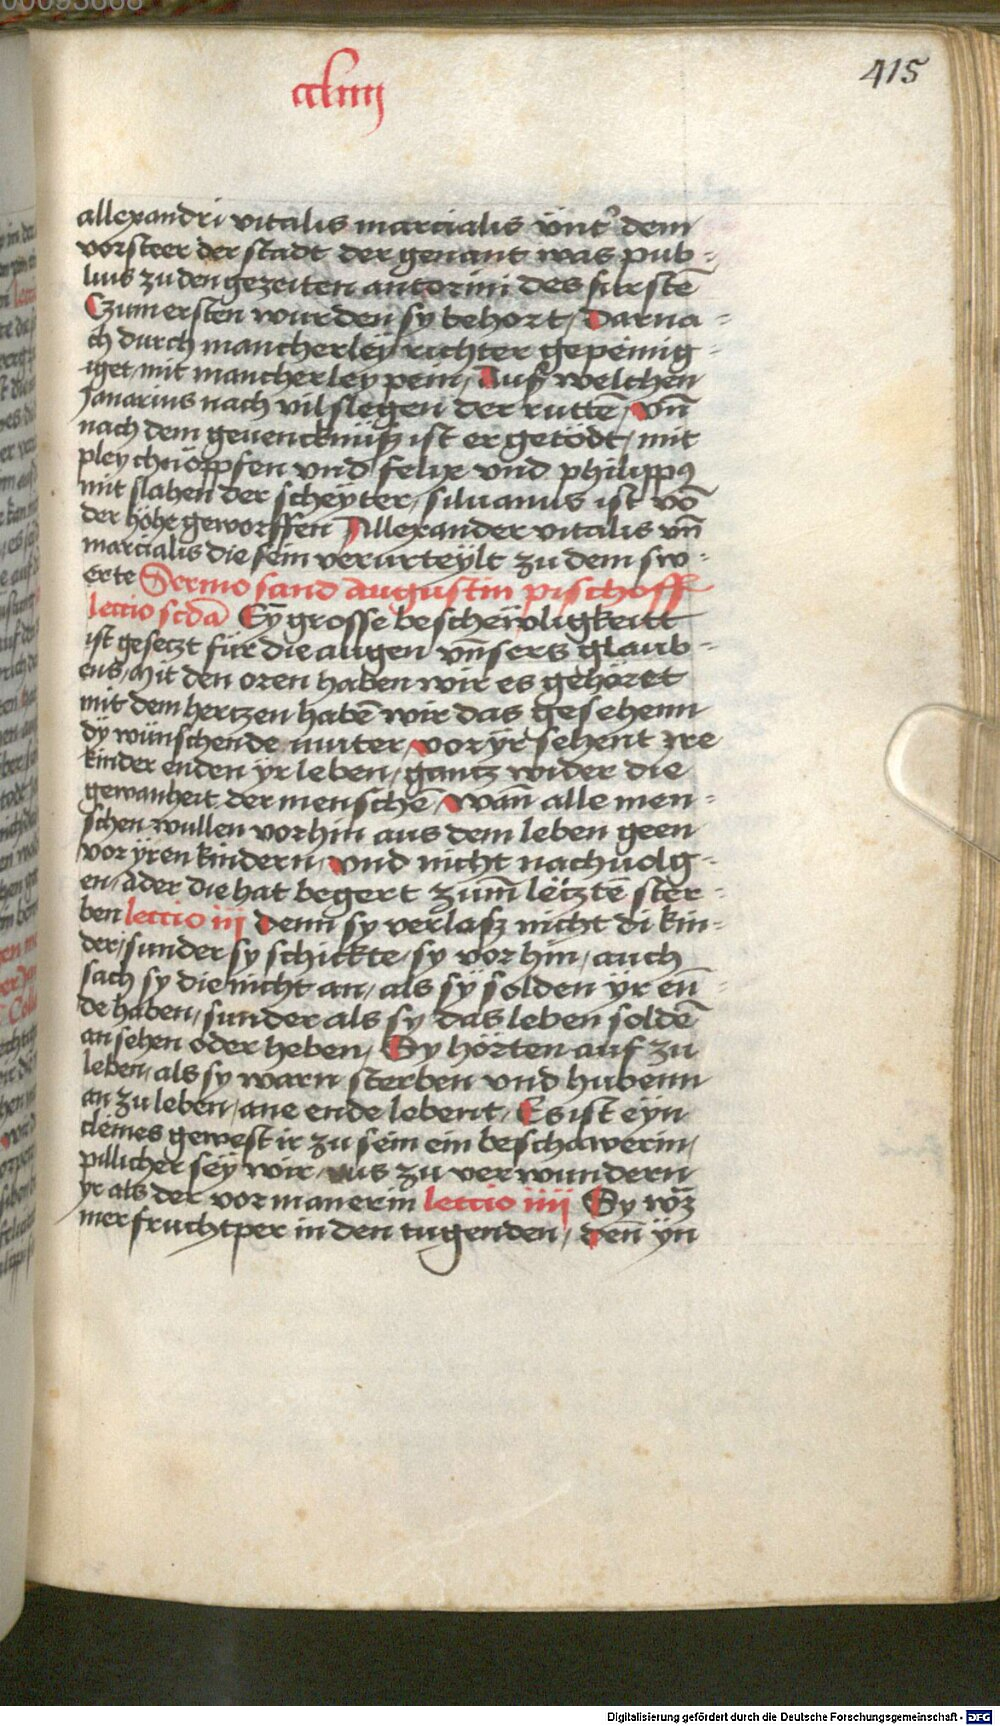 415
ccliiij
allexandri vitalis marcialis ünt' dem
vorsteer der stadt der genant was pub-
lius zu den gezeiten antonini des fürstē
Czum ersten wurden sy behort / Darna-
ch durch mancherley richter gepeinig-
iget / mit mancherley pein / Auß welchen
Janarius nach vil slegen der ruttē / vn̄
nach dem gevencknüß ist er getödt / mit
pley chnöpfen vnd felix vnd philippꝰ
mit slahen der scheyter / siluanus ist vō
der höhe geworffen Allexander vitalis vn̄
marcialis die sein verurteylt zu dem sw-
erte Sermo sand augustin pischoff
lectio scdā Ey grosse bescheẅligkeitt
ist gesetzt für die augen vn̄sers glaub-
ens / Mit den oren haben wir es gehöret
mit dem hertzen habē wir das gesehenn
dÿ wünschende muter / vor ÿr sehent ire
kinder enden ÿr leben / gantz wider die
gewanheit der menschē / wan̄ alle men-
schen wullen vorhin aus dem leben geen
vor ÿren kindern / vnd nicht nachuolg-
en / ader die hat begert zum̄ letztē ster-
ben lectio iij denn sy verlaß nicht di kin-
der / sunder sy schickte / sy vorhin / auch
sach sy die nicht an / als sÿ solden ÿr en̄-
de haben / sunder als sy das leben soldē
an sehen oder heben / Sy hörten auf zu
leben / als sy warn sterben vnd hubenn
an zu leben / ane ende lebent / Es ist eyn
cleines gewest ir zu sein ein beschawerin /
pillicher seÿ wir / vns zu verwundern
yr als der vormanerin lectio iiij Sy wz̈
mer fruchtper in den tugenden / den̄ ÿn
Digitalisierung gefördert durch die Deutsche Forschungsgemeinschaft - DFG